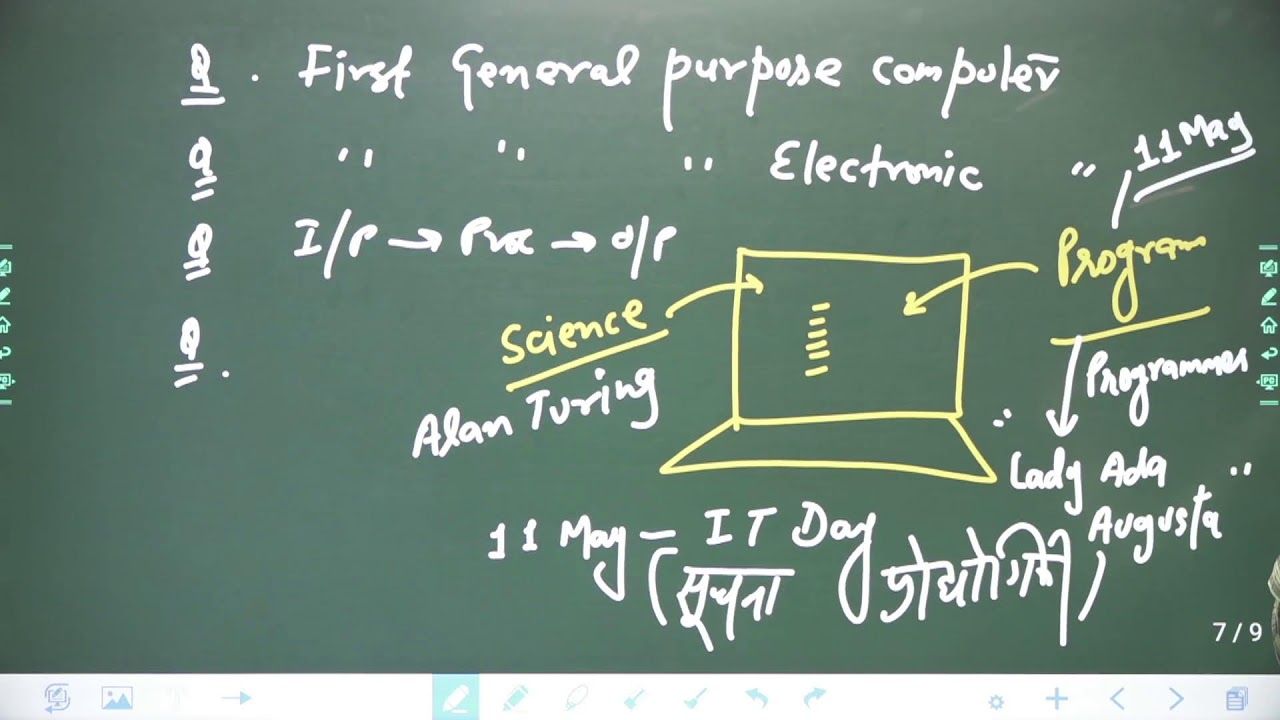 Q. First General purpose computer
Q " " " Electronic "
11 May
Q I/P → Proc → O/P
Program
Science
Q.
Programmer
Alan Turing
Lady Ada "
Augusta
11 May - IT Day
(सूचना प्रोद्योगिकी)
7/9